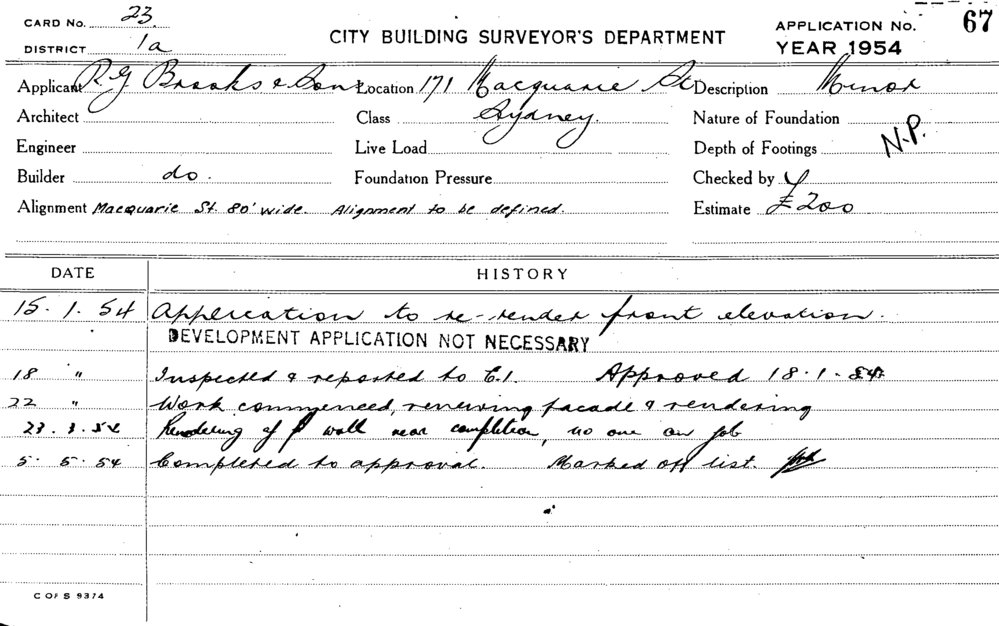 CARD No. 23
DISTRICT 1a
CITY BUILDING SURVEYOR'S DEPARTMENT
APPLICATION No. 67
YEAR 1954
Applicant R. G. Brooks & Sons Location 171 Macquarie St Description Minor
Architect Class Sydney Nature of Foundation
Engineer Live Load Depth of Footings N.P.
Builder do. Foundation Pressure Checked by
Alignment Macquarie St. 80' wide. Alignment to be defined. Estimate £200
DATE HISTORY
15. 1. 54 Application to re-render front elevation.
DEVELOPMENT APPLICATION NOT NECESSARY
18 " Inspected & reported to C.I. Approved 18.1.54
22 " Work commenced, renewing facade & rendering
23. 3. 54 Rendering of wall near completion, no one on job
5. 5. 54 Completed to approval. Marked off list.
C OF S 9374